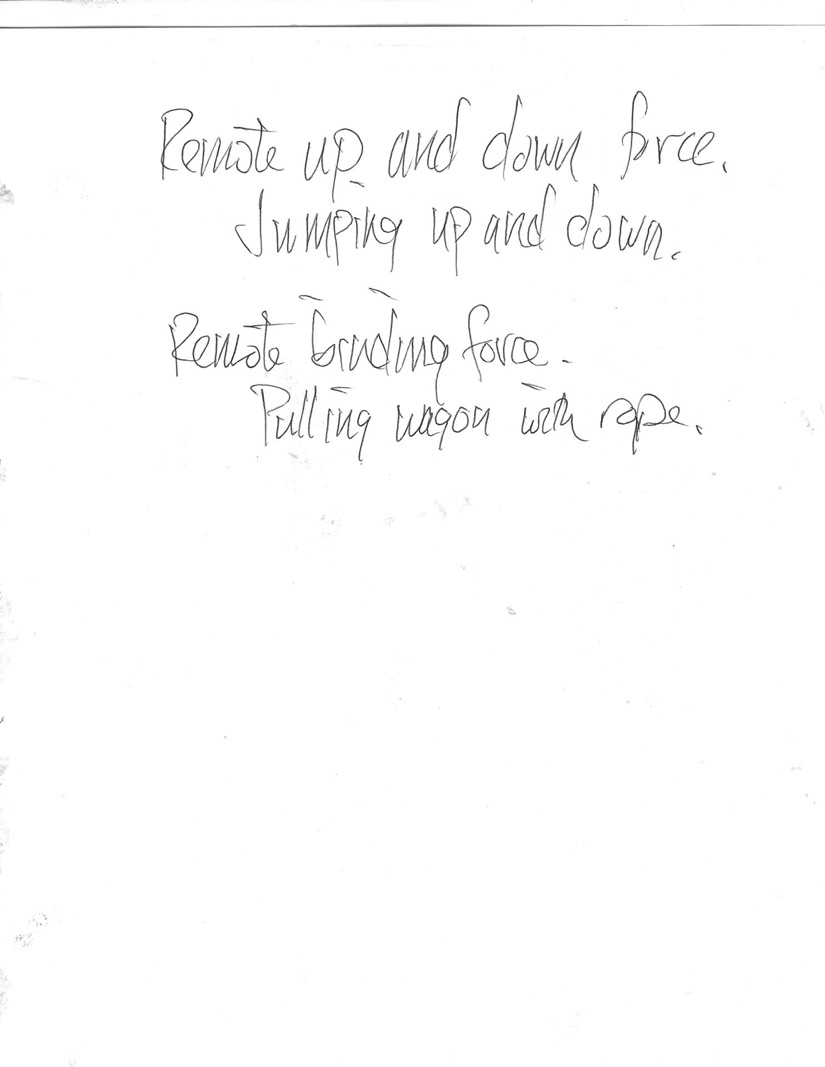 Remote up and down force.
Jumping up and down.
Remote binding force.
Pulling wagon with rope.